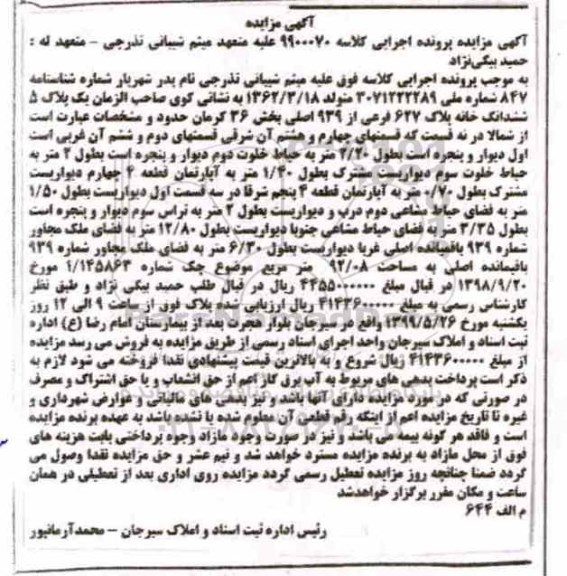 آگهی مزایده
آگهی مزایده پرونده اجرایی کلاسه ۹۹۰۰۰۷۰ علیه متعهد میثم شیبانی تذرجی - متعهد له :
حمید بیگی‌نژاد
به موجب پرونده اجرایی کلاسه فوق علیه میثم شیبانی تذرجی نام پدر شهریار شماره شناسنامه
۸۴۷ شماره ملی ۳۰۷۱۲۲۲۲۸۹ متولد ۱۳۶۲/۳/۱۸ به نشانی کوی صاحب الزمان یک پلاک ۵
ششدانگ خانه پلاک ۶۲۷ فرعی از ۹۳۹ اصلی بخش ۳۶ کرمان حدود و مشخصات عبارت است
از شمالا در نه قسمت که قسمتهای چهارم و هشتم آن شرقی قسمتهای دوم و ششم آن غربی است
اول دیوار و پنجره است بطول ۲/۲۰ متر به حیاط خلوت دوم دیوار و پنجره است بطول ۲ متر به
حیاط خلوت سوم دیواریست مشترک بطول ۱/۴۰ متر به آپارتمان قطعه ۴ چهارم دیواریست
مشترک بطول ۰/۷۰ متر به آپارتمان قطعه ۴ پنجم شرقا در سه قسمت اول دیواریست بطول ۱/۵۰
متر به فضای حیاط مشاعی دوم درب و دیواریست بطول ۲ متر به تراس سوم دیوار و پنجره است
بطول ۳/۳۵ متر به فضای حیاط مشاعی جنوبا دیواریست بطول ۱۲/۸۰ متر به فضای ملک مجاور
شماره ۹۳۹ باقیمانده اصلی غربا دیواریست بطول ۶/۳۰ متر به فضای ملک مجاور شماره ۹۳۹
باقیمانده اصلی به مساحت ۹۲/۰۸ متر مربع موضوع چک شماره ۱/۱۴۵۸۶۳ مورخ
۱۳۹۸/۹/۲۰ در قبال مبلغ ۴۴۵۵۰۰۰۰۰۰ ریال در قبال طلب حمید بیگی نژاد و طبق نظر
کارشناس رسمی به مبلغ ۴۱۴۳۶۰۰۰۰۰ ریال ارزیابی شده پلاک فوق از ساعت ۹ الی ۱۲ روز
یکشنبه مورخ ۱۳۹۹/۵/۲۶ واقع در سیرجان بلوار هجرت بعد از بیمارستان امام رضا (ع) اداره
ثبت اسناد و املاک سیرجان واحد اجرای اسناد رسمی از طریق مزایده به فروش می رسد مزایده
از مبلغ ۴۱۴۳۶۰۰۰۰۰ ریال شروع و به بالاترین قیمت پیشنهادی نقدا فروخته می شود لازم به
ذکر است پرداخت بدهی های مربوط به آب برق گاز اعم از حق انشعاب و یا حق اشتراک و مصرف
در صورتی که مورد مزایده دارای آنها باشد و نیز بدهی های مالیاتی و عوارض شهرداری و
غیره تا تاریخ مزایده اعم از اینکه رقم قطعی آن معلوم شده یا نشده باشد به عهده برنده مزایده
است و فاقد هر گونه بیمه می باشد و نیز در صورت وجود مازاد وجوه پرداختی بابت هزینه های
فوق از محل مازاد به برنده مزایده مسترد خواهد شد و نیم عشر و حق مزایده نقدا وصول می
گردد ضمنا چنانچه روز مزایده تعطیل رسمی گردد مزایده روی اداری بعد از تعطیلی در همان
ساعت و مکان مقرر برگزار خواهدشد
م الف ۶۴۴
رئیس اداره ثبت اسناد و املاک سیرجان - محمدآرمانپور